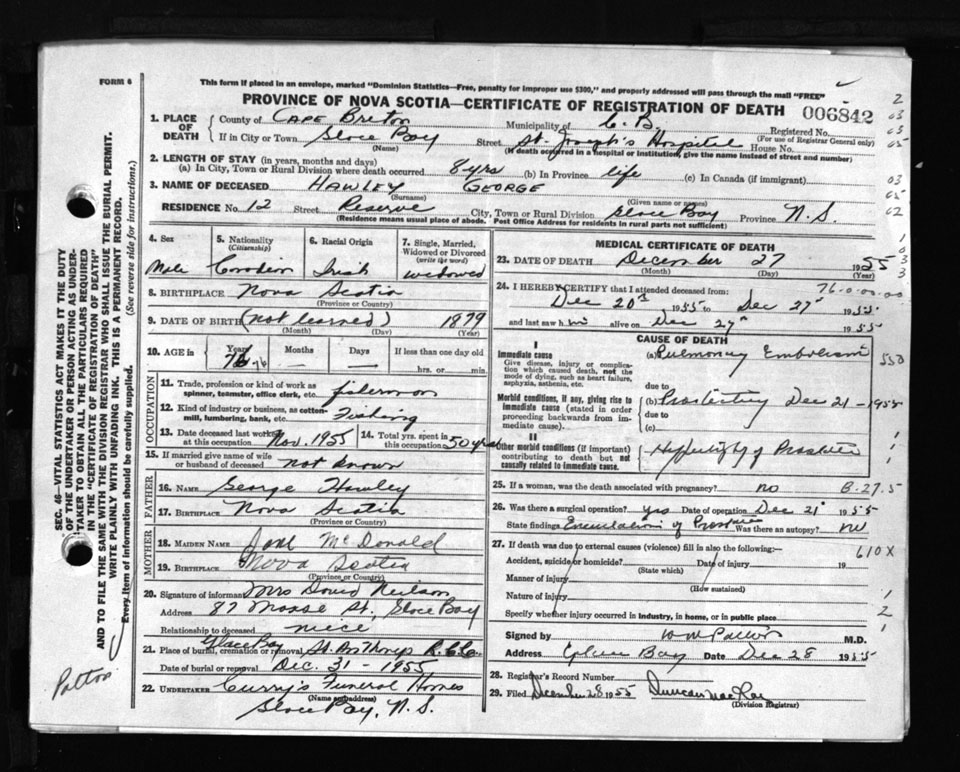 FORM 6
This form if placed in an envelope, marked "Dominion Statistics—Free, penalty for improper use $300," and properly addressed will pass through the mail "FREE"
PROVINCE OF NOVA SCOTIA—CERTIFICATE OF REGISTRATION OF DEATH 006842
1. PLACE OF DEATH County of Cape Breton Municipality of C. B. Registered No.
(For use of Registrar General only)
If in City or Town Glace Bay Street St. Joseph's Hospital House No.
(Name) (If death occurred in a hospital or institution, give the name instead of street and number)
2. LENGTH OF STAY (in years, months and days)
(a) In City, Town or Rural Division where death occurred 8 yrs (b) In Province life (c) In Canada (if immigrant)
3. NAME OF DECEASED HAWLEY GEORGE
(Surname) (Given name or names)
RESIDENCE No. 12 Street Reserve City, Town or Rural Division Glace Bay Province N. S.
(Residence means usual place of abode. Post Office Address for residents in rural parts not sufficient)
4. Sex 5. Nationality (Citizenship) 6. Racial Origin 7. Single, Married, Widowed or Divorced (write the word)
Male Canadian Irish widowed
8. BIRTHPLACE Nova Scotia
(Province or Country)
9. DATE OF BIRTH (not learned) 1879
(Month) (Day) (Year)
10. AGE in Years Months Days If less than one day old
76 hrs. or min.
OCCUPATION
11. Trade, profession or kind of work as spinner, teamster, office clerk, etc. fisherman
12. Kind of industry or business, as cotton-mill, lumbering, bank, etc. Fishing
13. Date deceased last worked at this occupation Nov. 1955 14. Total yrs. spent in this occupation 50 yrs
15. If married give name of wife or husband of deceased not known
FATHER
16. NAME George Hawley
17. BIRTHPLACE Nova Scotia
(Province or Country)
MOTHER
18. MAIDEN NAME Jane McDonald
19. BIRTHPLACE Nova Scotia
(Province or Country)
20. Signature of informant Mrs David Neilson
Address 87 Moose St. Glace Bay
Relationship to deceased niece
21. Place of burial, cremation or removal Glace Bay St. Anthonys R.C.C.
Date of burial or removal Dec. 31 - 1955
22. UNDERTAKER Curry's Funeral Homes
(Name and address)
Glace Bay, N. S.
MEDICAL CERTIFICATE OF DEATH
23. DATE OF DEATH December 27 1955
(Month) (Day) (Year)
76-0-00-00
24. I HEREBY CERTIFY that I attended deceased from:
Dec 20 1955 to Dec 27 1955
and last saw him alive on Dec 27 1955
CAUSE OF DEATH
I
Immediate cause (a) Pulmonary Embolism
Give disease, injury or complication which caused death, not the mode of dying, such as heart failure, asphyxia, asthenia, etc.
due to
Morbid conditions, if any, giving rise to immediate cause (stated in order proceeding backwards from immediate cause). (b) Dec 21 - 1955
due to
(c)
II
Other morbid conditions (if important) contributing to death but not causally related to immediate cause. of Prostate
25. If a woman, was the death associated with pregnancy? no B-27.5
26. Was there a surgical operation? yes Date of operation Dec 21 1955
State findings Enucleation of Prostate Was there an autopsy? no
27. If death was due to external causes (violence) fill in also the following:— 610X
Accident, suicide or homicide? Date of injury 19
(State which)
Manner of injury
(How sustained)
Nature of injury
Specify whether injury occurred in industry, in home, or in public place
Signed by M.D.
Address Glace Bay Date Dec 28 1955
28. Registrar's Record Number
29. Filed December 28 1955 Duncan
(Division Registrar)
SEC. 46—VITAL STATISTICS ACT MAKES IT THE DUTY
OF THE UNDERTAKER OR PERSON ACTING AS UNDERTAKER TO OBTAIN ALL THE PARTICULARS REQUIRED
IN THE "CERTIFICATE OF REGISTRATION OF DEATH"
AND TO FILE THE SAME WITH THE DIVISION REGISTRAR WHO SHALL ISSUE THE BURIAL PERMIT.
WRITE PLAINLY WITH UNFADING INK. THIS IS A PERMANENT RECORD.
Every item of information should be carefully supplied. (See reverse side for instructions.)
Patton